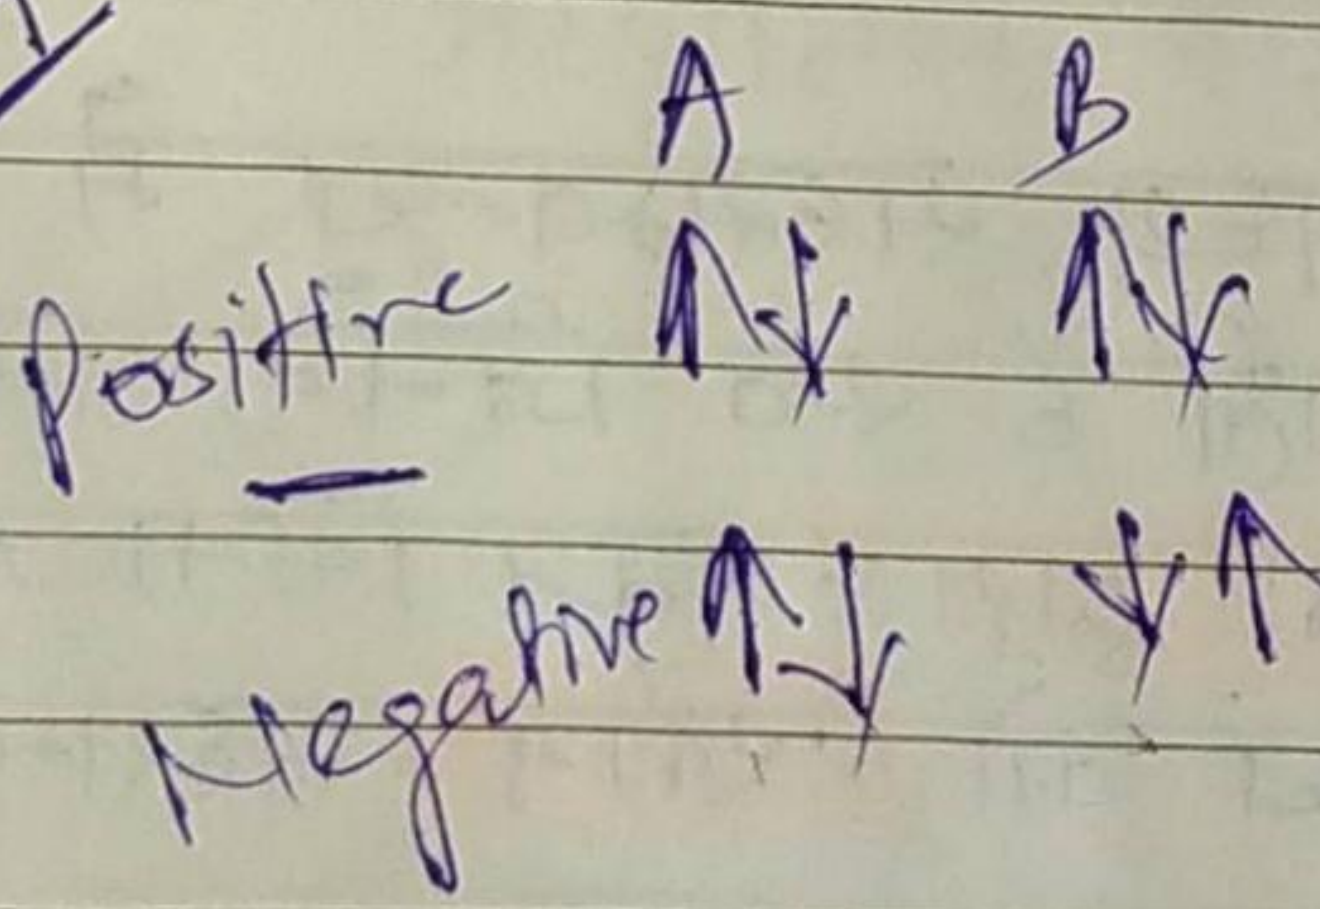 A B
Positive ↑↓ ↑↓
Negative ↑↓ ↓↑